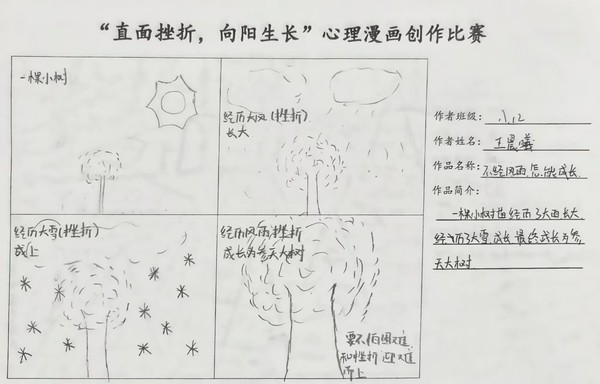 “直面挫折，向阳生长”心理漫画创作比赛
一棵小树
经历大风(挫折)
长大
经历大雪(挫折)
成上
经历风雨挫折
成长为参天大树
要不怕困难
和挫折 迎难
而上
作者班级：八.12
作者姓名：王晨曦
作品名称：不经风雨,怎能成长
作品简介：
一棵小树苗经历了大雨长大
经历了大雪成长最终成长为参
天大树